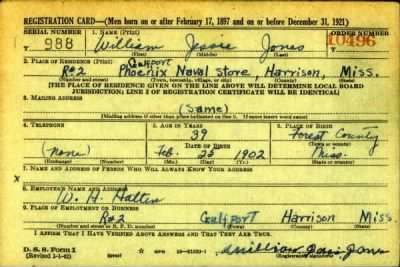 REGISTRATION CARD—(Men born on or after February 17, 1897 and on or before December 31, 1921)
SERIAL NUMBER 1. NAME (Print) ORDER NUMBER
T 988 William Jessie Jones 10496
(First) (Middle) (Last)
2. PLACE OF RESIDENCE (Print) Gulfport
R#2 Phoenix Naval Store, Harrison, Miss.
(Number and street) (Town, township, village, or city) (County) (State)
[THE PLACE OF RESIDENCE GIVEN ON THE LINE ABOVE WILL DETERMINE LOCAL BOARD
JURISDICTION; LINE 2 OF REGISTRATION CERTIFICATE WILL BE IDENTICAL]
3. MAILING ADDRESS
(Same)
[Mailing address if other than place indicated on line 2. If same insert word same]
4. TELEPHONE 5. AGE IN YEARS 6. PLACE OF BIRTH
39 Forest County
DATE OF BIRTH (Town or county)
(none) Feb. 25 1902 Miss.
(Exchange) (Number) (Mo.) (Day) (Yr.) (State or country)
7. NAME AND ADDRESS OF PERSON WHO WILL ALWAYS KNOW YOUR ADDRESS
x
8. EMPLOYER'S NAME AND ADDRESS
W. H. Halten
9. PLACE OF EMPLOYMENT OR BUSINESS
R#2 Gulfport Harrison Miss.
(Number and street or R. F. D. number) (Town) (County) (State)
I AFFIRM THAT I HAVE VERIFIED ABOVE ANSWERS AND THAT THEY ARE TRUE.
D. S. S. Form 1
(Revised 1-1-42) (over) GPO 16—21630-1 William Jones
(Registrant's signature)